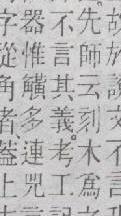 故於說文不言
先師云刻木爲
不言其義考工記
器惟觵多連兕
字從角者蓋上